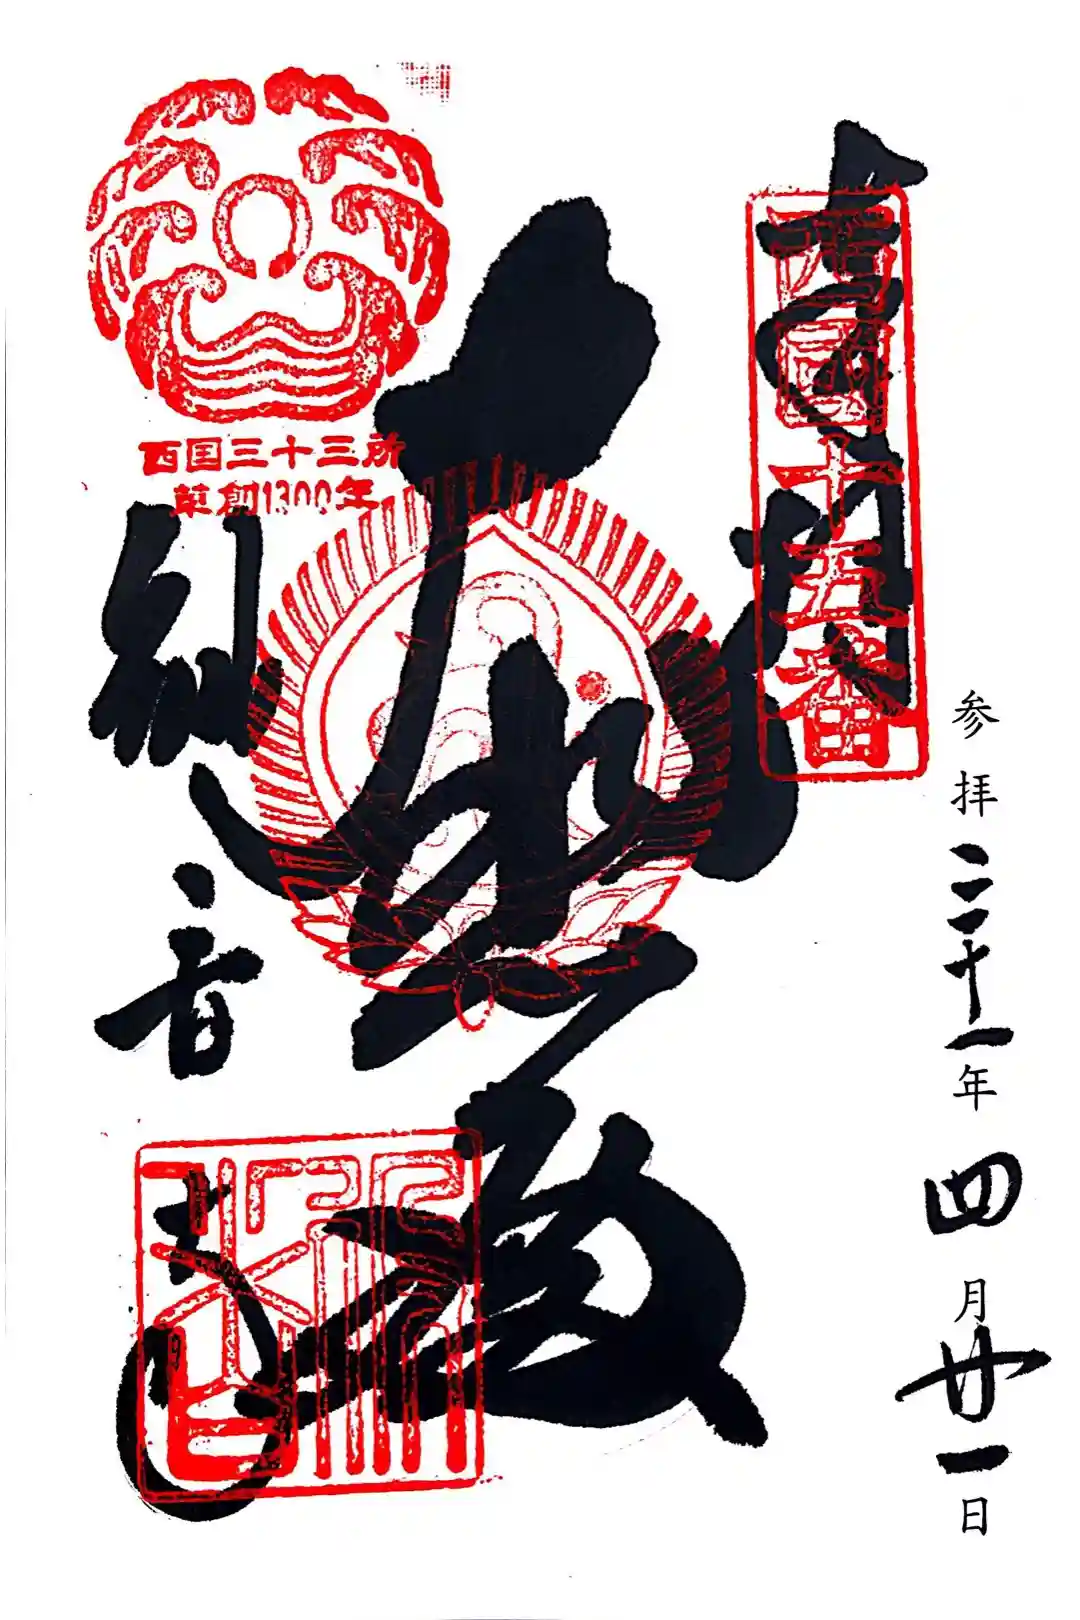 西國十五番
参拝 三十一年 四月 廿一日
大悲殿
西国三十三所
草創1300年
観音寺